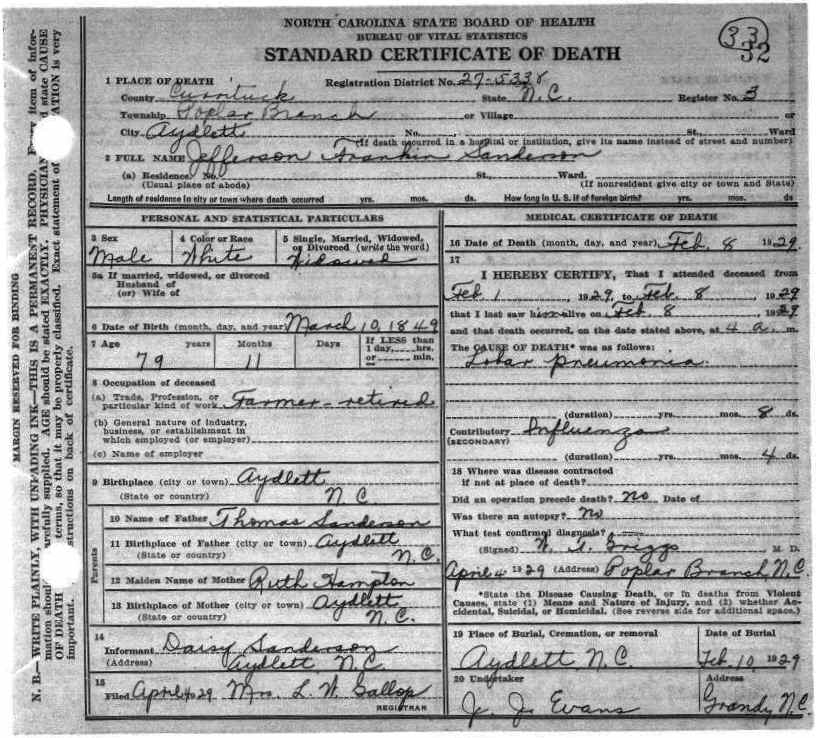 NORTH CAROLINA STATE BOARD OF HEALTH
BUREAU OF VITAL STATISTICS
STANDARD CERTIFICATE OF DEATH
33
32
1 PLACE OF DEATH
Registration District No. 27-5338
County Currituck State N.C. Register No. 3
Township Poplar Branch or Village or
City Aydlett No. St., Ward
(If death occurred in a hospital or institution, give its name instead of street and number)
2 FULL NAME Jefferson Frankin Sanderson
(a) Residence. No. St., Ward.
(Usual place of abode) (If nonresident give city or town and State)
Length of residence in city or town where death occurred yrs. mos. ds. How long in U. S. if of foreign birth? yrs. mos. ds
PERSONAL AND STATISTICAL PARTICULARS
3 Sex
Male
4 Color or Race
White
5 Single, Married, Widowed, or Divorced (write the word)
Widowed
5a If married, widowed, or divorced
Husband of
(or) Wife of
6 Date of Birth (month, day, and year) March 10, 1849
7 Age years Months Days If LESS than
1 day, hrs.
or min.
79 11
8 Occupation of deceased
(a) Trade, Profession, or
particular kind of work Farmer - retired
(b) General nature of industry,
business, or establishment in
which employed (or employer)
(c) Name of employer
9 Birthplace (city or town) Aydlett
(State or country) N C
Parents
10 Name of Father Thomas Sanderson
11 Birthplace of Father (city or town) Aydlett
(State or country) N.C.
12 Maiden Name of Mother Ruth Hampton
13 Birthplace of Mother (city or town) Aydlett
(State or country) N.C.
14
Informant Daisy Sanderson
(Address) Aydlett N.C.
15
Filed April 4 29 Mrs. L. W. Gallop
REGISTRAR
MEDICAL CERTIFICATE OF DEATH
16 Date of Death (month, day, and year) Feb. 8 1929
17
I HEREBY CERTIFY, That I attended deceased from
Feb 1, 1929, to Feb. 8, 1929
that I last saw him alive on Feb. 8 1929
and that death occurred, on the date stated above, at 4 a. m.
The CAUSE OF DEATH* was as follows:
Lobar pneumonia
(duration) yrs. mos. 8 ds.
Contributory Influenza
(SECONDARY)
(duration) yrs. mos. 4 ds.
18 Where was disease contracted
if not at place of death?
Did an operation precede death? No Date of
Was there an autopsy? No
What test confirmed diagnosis?
(Signed) W. T. Griggs M D.
April 4 1929 (Address) Poplar Branch, N.C.
*State the Disease Causing Death, or in deaths from Violent
Causes, state (1) Means and Nature of Injury, and (2) whether Ac-
cidental, Suicidal, or Homicidal. (See reverse side for additional space.)
19 Place of Burial, Cremation, or removal
Aydlett, N.C.
Date of Burial
Feb. 10 1929
20 Undertaker
J. J. Evans
Address
Grandy N.C.
MARGIN RESERVED FOR BINDING
N. B.—WRITE PLAINLY, WITH UNFADING INK—THIS IS A PERMANENT RECORD. item of infor-
mation should efully supplied. AGE should be stated EXACTLY. PHYSICIAN d state CAUSE
OF DEATH terms, so that it may be properly classified. Exact statement of ATION is very
important. structions on back of certificate.